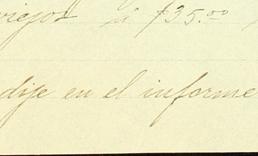 viejos á $35.00
dije en el informe